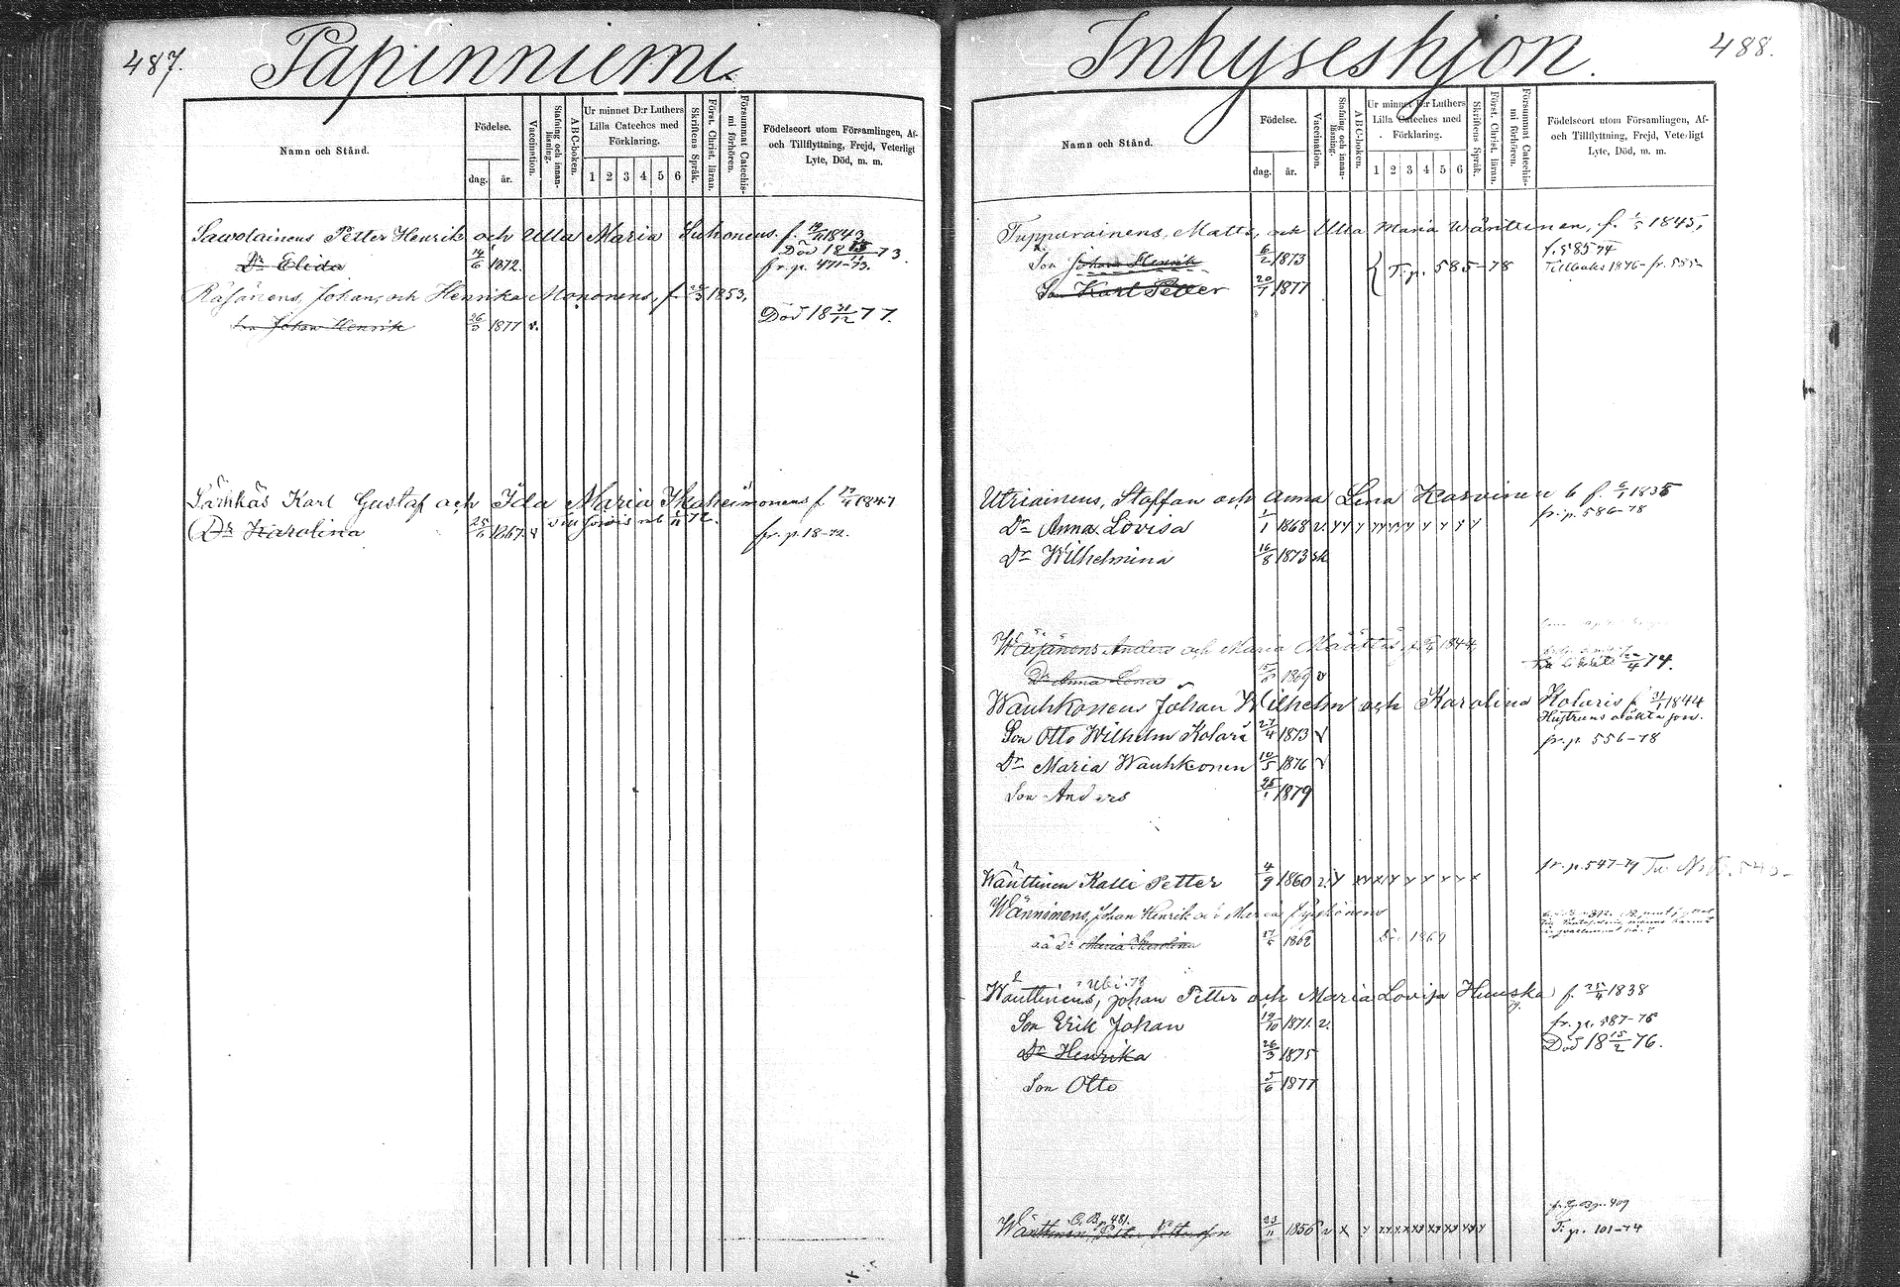 487.
Papinniemi
Namn och Stånd.
Födelse.
dag.
år.
Vaccination.
Stafning och innanläsning.
ABC-boken.
Ur minnet D:r Luthers
Lilla Cateches med
Förklaring.
1 2 3 4 5 6
Skriftens Språk.
Först. Christ. läran.
Försummat Catechismi förhören.
Födelseort utom Församlingen, Af-
och Tillflyttning, Frejd, Veterligt
Lyte, Död, m. m.
Sawolainens Petter Henrik och Ulla Maria Suhonens f. 1843
Dr Elida 14/6 1872. Död 18 73.
fr. p. 471-73.
Räsänens, Johan, och Henrika Mononens, f. 1853,
Son Johan Henrik 1877 v. Död 18 31/12 77.
Särkkäs Karl Gustaf och Ida Maria Ikäheimonens f 1847
Dr Karolina 1867 v
fr. p. 18-72.
488.
Inhyseshjon.
Namn och Stånd.
Födelse.
dag.
år.
Vaccination.
Stafning och innanläsning.
ABC-boken.
Ur minnet D:r Luthers
Lilla Cateches med
Förklaring.
1 2 3 4 5 6
Skriftens Språk.
Först. Christ. läran.
Försummat Catechismi förhören.
Födelseort utom Församlingen, Af-
och Tillflyttning, Frejd, Veterligt
Lyte, Död, m. m.
Tuppurainens, Matts, och Ulla Maria Wänttinen, f. 1845,
Son Johan Henrik 6/2 1873 T. p. 585-78 f. 585 74
Tillbaka 1876- fr. 585-
Son Karl Petter 20/1 1877
Utriainens, Staffan och Anna Lena Karvinen f. 1835
Dr Anna Lovisa 1/1 1868 v. fr. p. 586-78
Dr Wilhelmina 16/8 1873 sk
Wäisänens Anders och Maria Määttäs, 1844,
Dr Anna Lena 1869 v 74.
Wauhkonens Johan Wilhelm och Karolina Kolaris f 1844
Hustruns oäkta son.
Son Otto Wilhelm Kolari 27/4 1873 v fr. p. 556-78
Dr Maria Wauhkonen 10/5 1876 v
Son Anders 1879
Wänttinen Kalle Petter 4/9 1860 v. fr. p. 547-79
Wänninens, Johan Henrik och Maria
oä Dr Maria Karolina 1862 1869
Wänttinens, Johan Petter och Maria Lovisa Huuska f. 25/4 1838
Son Erik Johan 19/10 1871 v. fr. p. 587-75
Dr Henrika 26/3 1875 Död 18 15/2 76.
Son Otto 5/6 1877
p. 481.
Wänttinen, Petter Pettersson 1856 v x T. p. 101-74